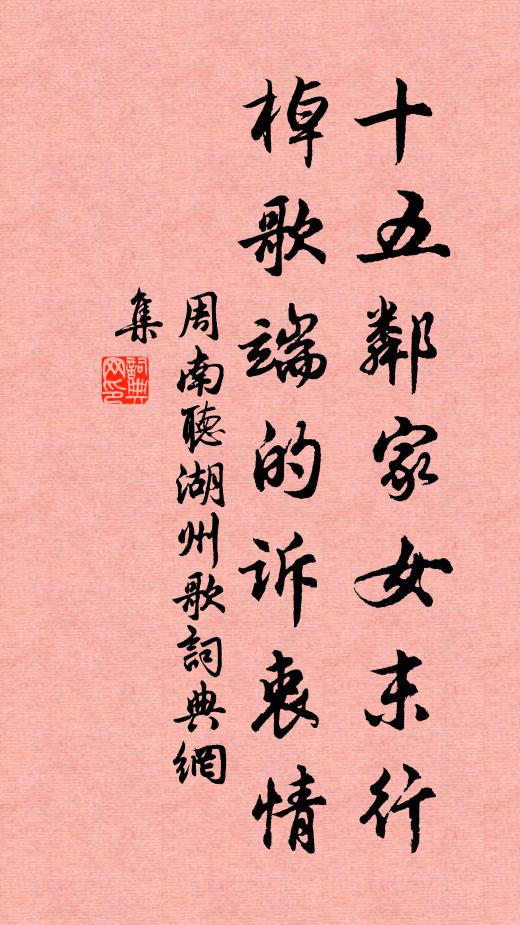 十五鄰家女末行
棹歌端的诉衷情
周南聽湖州歌詞典網
集
詞典網印